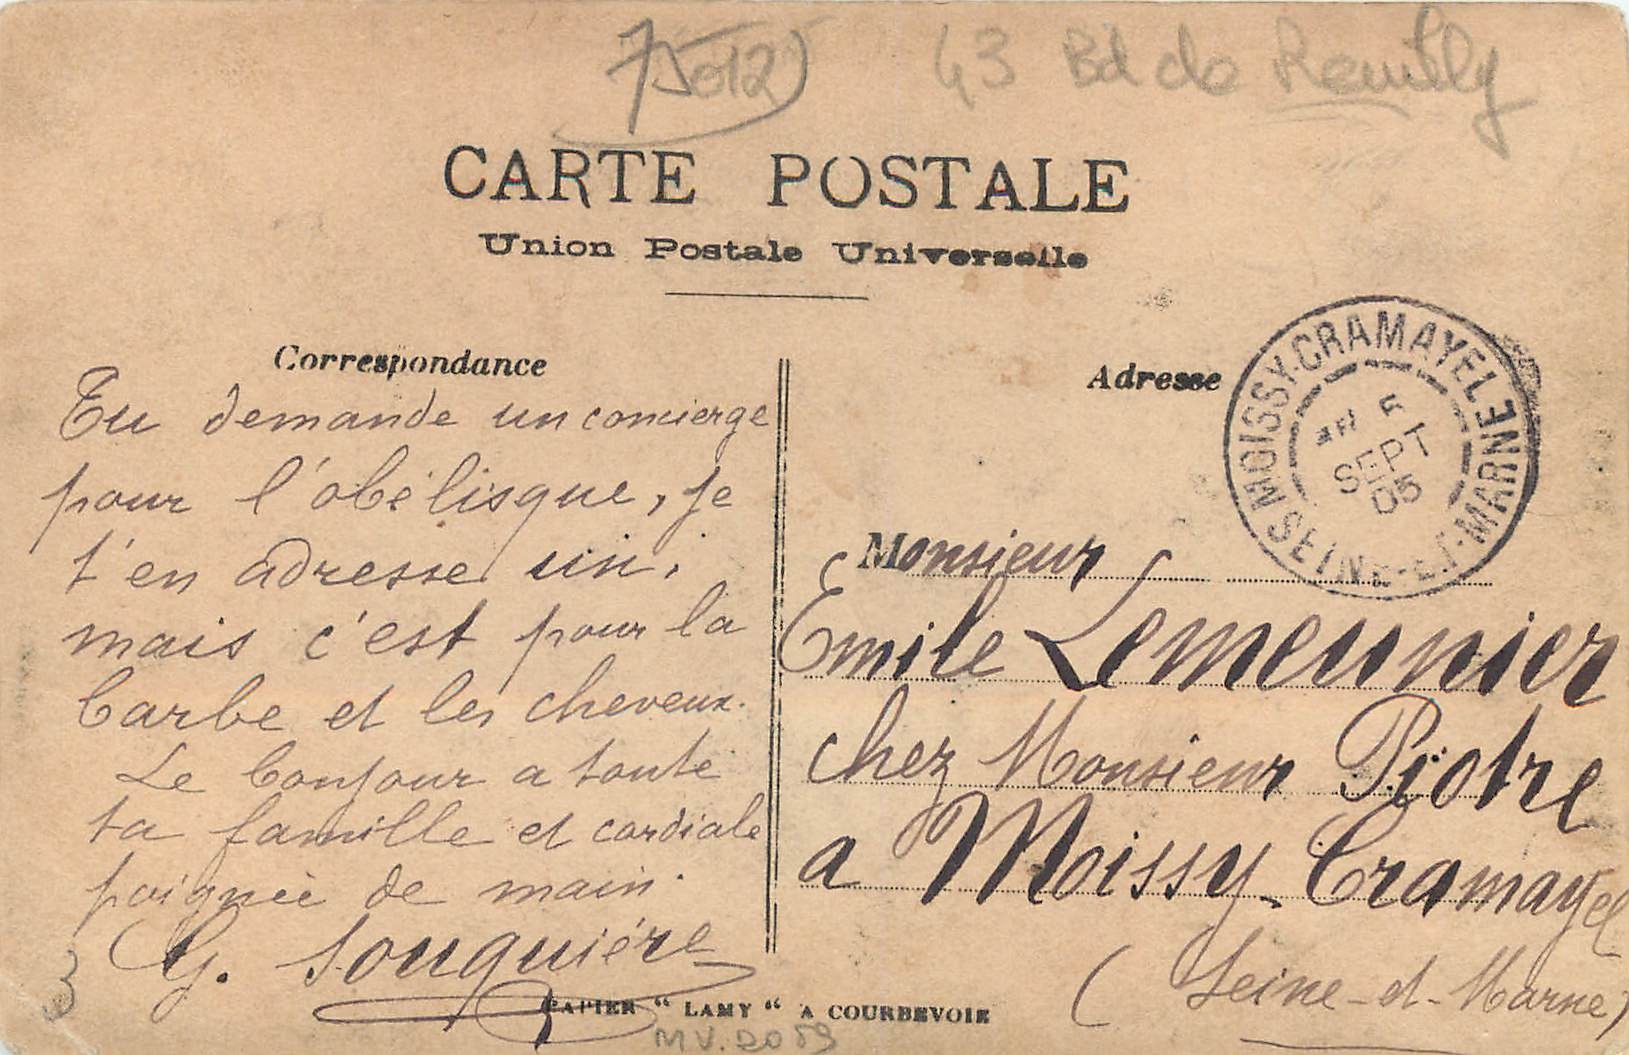 75012
43 Bd de Reuilly
CARTE POSTALE
Union Postale Universelle
Correspondance
Tu demande un concierge
pour l'obélisque, je
t'en adresse un,
mais c'est pour la
barbe et les cheveux.
Le bonjour a toute
ta famille et cordiale
poignée de main.
G. Souquière
Adresse
MOISSY-CRAMAYEL
5
SEPT
05
SEINE-ET-MARNE
Monsieur
Emile Lemeunier
chez Monsieur Piotre
a Moissy-Cramayel
(Seine-et-Marne)
PAPIER "LAMY" A COURBEVOIE